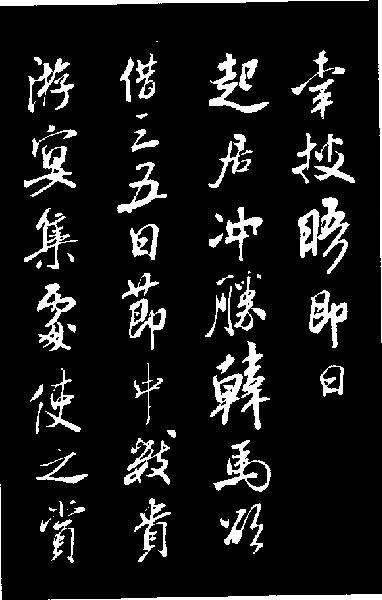 幸披晤即日
起居冲勝韓馬欲
借三五日節中數貴
游宴集處使之賞